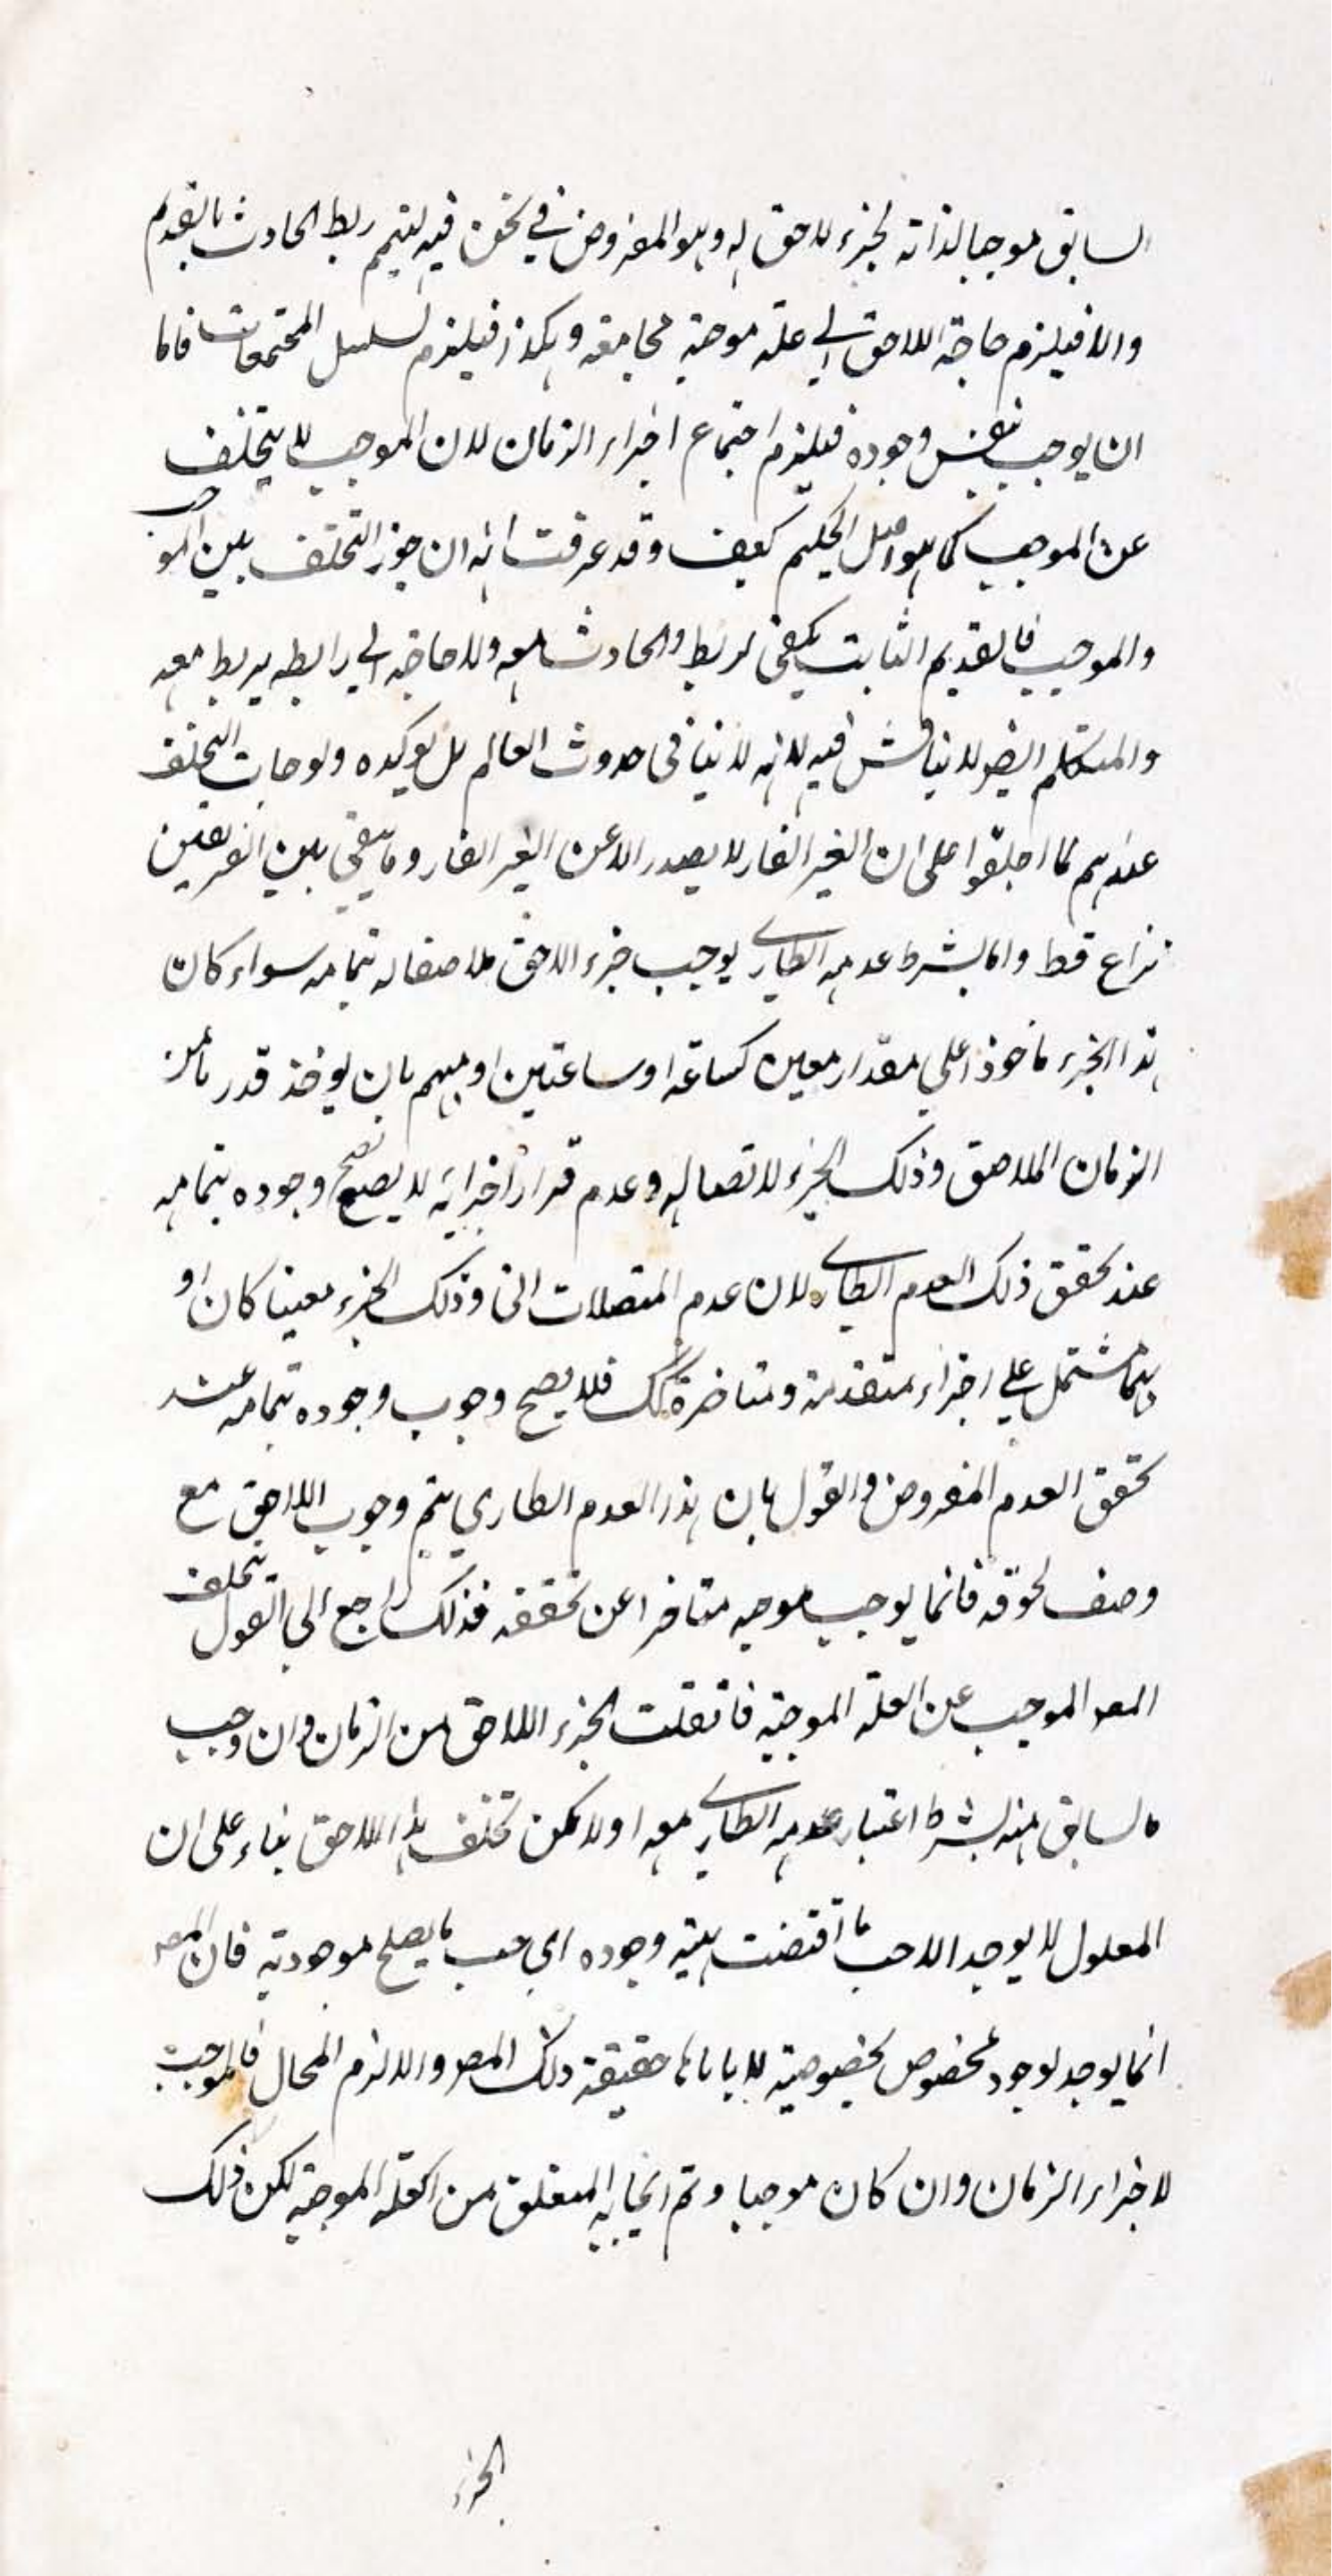 السابق موجبا لذاته لجزء لاحق له وهو المفروض في نحن فيه ليتم ربط الحادث بالقديم
والا فيلزم حاجة اللاحق الى علة موجبة مجامعه وهكذا فيلزم تسلسل المجتمعات فاما
ان يوجب بنفس وجوده فيلزم اجتماع اجزاء الزمان لان الموجب لا يتخلف
عن الموجب كما هو اصل الحكيم كيف وقد عرفت انه ان جوز التخلف بين الموجب
والموجب فالقديم الثابت يكفي لربط الحادث معه ولا حاجة الى رابطه يربط معه
والمتكلم ايضا لا يناقش فيه لانه لا ينافي حدوث العالم بل يوكده ولو جاز التخلف
عندهم لما اجلقوا على ان الغير القار لا يصدر الا عن الغير القار وما يبقى بين الفريقين
نزاع قط واما بشرط عدمه الطاري يوجب جزء اللاحق ملاصقا له بتمامه سواء كان
هذا الجزء ماخوذا على مقدار معين كساعة او ساعتين او مبهم بان يوخذ قدر ما من
الزمان الملاصق وذلك الجزء لاتصاله وعدم قرار اجزائه لا يصح وجوده بتمامه
عند تحقق ذلك العدم الطاري لان عدم المتصلات اني وذلك الجزء معينا كان او
مبهما مشتمل على اجزاء متقدمة ومتاخرة كك فلا يصح وجوب وجوده بتمامه عند
تحقق العدم المفروض والقول بان هذا العدم الطاري يتم وجوب اللاحق مع
وصف لحوقه فانما يوجب موجبه متاخرا عن تحققه فذلك راجع الى القول بتخلف
المعه الموجب عن العلة الموجبة فان قلت الجزء اللاحق من الزمان وان وجب
بالسابق منه بشرط اعتبار عدمه الطاري معه او لا لكن تخلف هذا اللاحق بناء على ان
المعلول لا يوجد الا حسب ما اقتضت هيئة وجوده اي حسب ما يصلح موجوديته فان المعه
انما يوجد لوجود مخصوص بخصوصية لا ياباها حقيقة ذلك المعه والا لزم المحال فالموجب
لاجزاء الزمان وان كان موجبا وتم ايجابه المتعلق من العلة الموجبة لكن ذلك
الجزء